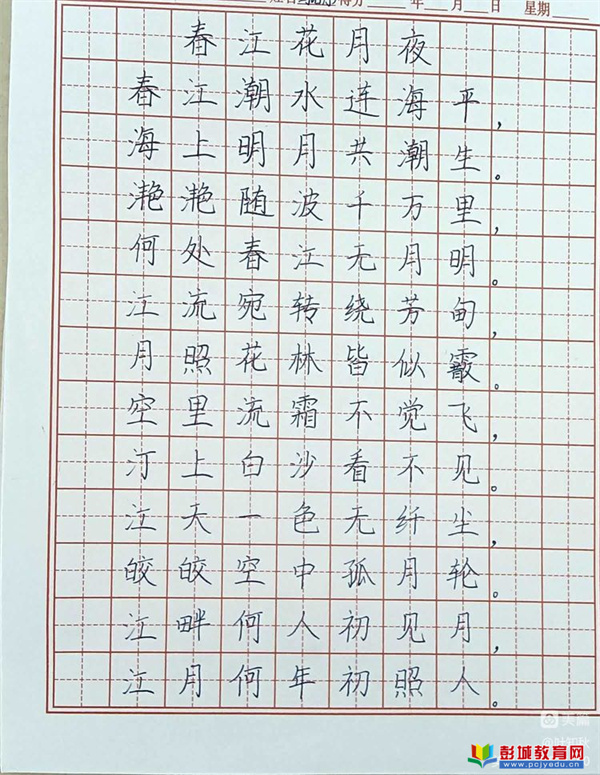 得分 年 月 日 星期
春江花月夜
春江潮水连海平，
海上明月共潮生。
滟滟随波千万里，
何处春江无月明。
江流宛转绕芳甸，
月照花林皆似霰。
空里流霜不觉飞，
汀上白沙看不见。
江天一色无纤尘，
皎皎空中孤月轮。
江畔何人初见月，
江月何年初照人。
美篇
彭城教育网
www.pcjyedu.cn